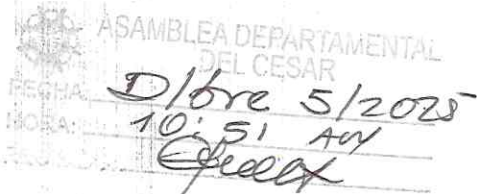 ASAMBLEA DEPARTAMENTAL
DEL CESAR
FECHA: D/bre 5/2025
HORA: 10:51 AM